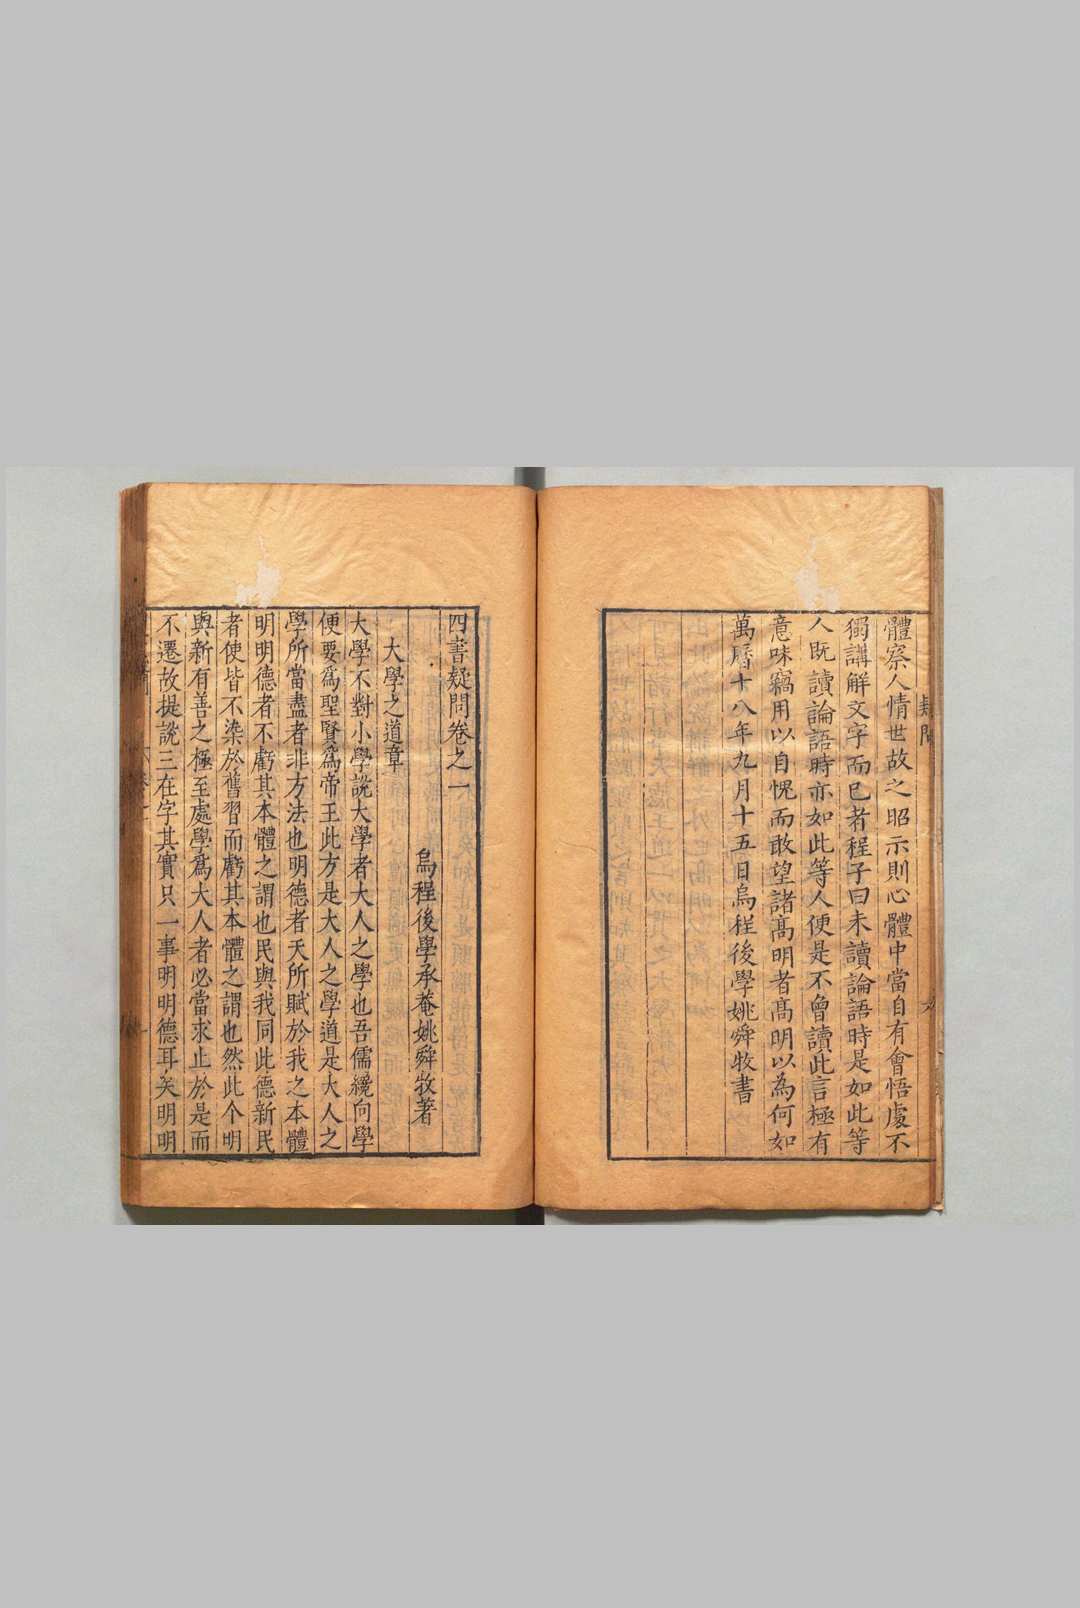 體察人情世故之昭示則心體中當自有會悟處不
獨講解文字而已者程子曰未讀論語時是如此等
人既讀論語時亦如此等人便是不曾讀此言極有
意味竊用以自愧而敢望諸高明者高明以為何如
萬曆十八年九月十五日烏程後學姚舜牧書
四書疑問卷之一
烏程後學承菴姚舜牧著
大學之道章
大學不對小學說大學者大人之學也吾儒纔向學
便要爲聖賢爲帝王此方是大人之學道是大人之
學所當盡者非方法也明德者天所賦於我之本體
明明德者不虧其本體之謂也民與我同此德新民
者使皆不染於舊習而虧其本體之謂也然此个明
與新有善之極至處學爲大人者必當求止於是而
不遷故提說三在字其實只一事明明德耳矣明明